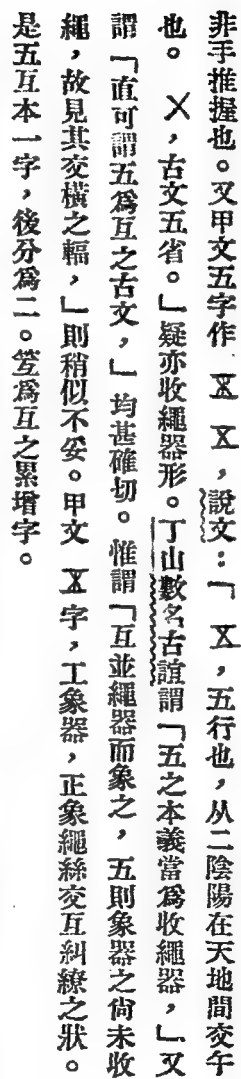 非手推握也。又甲文五字作 𠄡 㐅,說文:「𠄡,五行也,从二陰陽在天地間交午
也。㐅,古文五省。」疑亦收繩器形。丁山數名古誼謂「五之本義當爲收繩器,」又
謂「直可謂五爲互之古文,」均甚確切。惟謂「互並繩器而象之,五則象器之尙未收
繩,故見其交橫之輻,」則稍似不妥。甲文 𠄡 字,工象器,正象繩絲交互糾繚之狀。
是五互本一字,後分爲二。笠爲互之累增字。